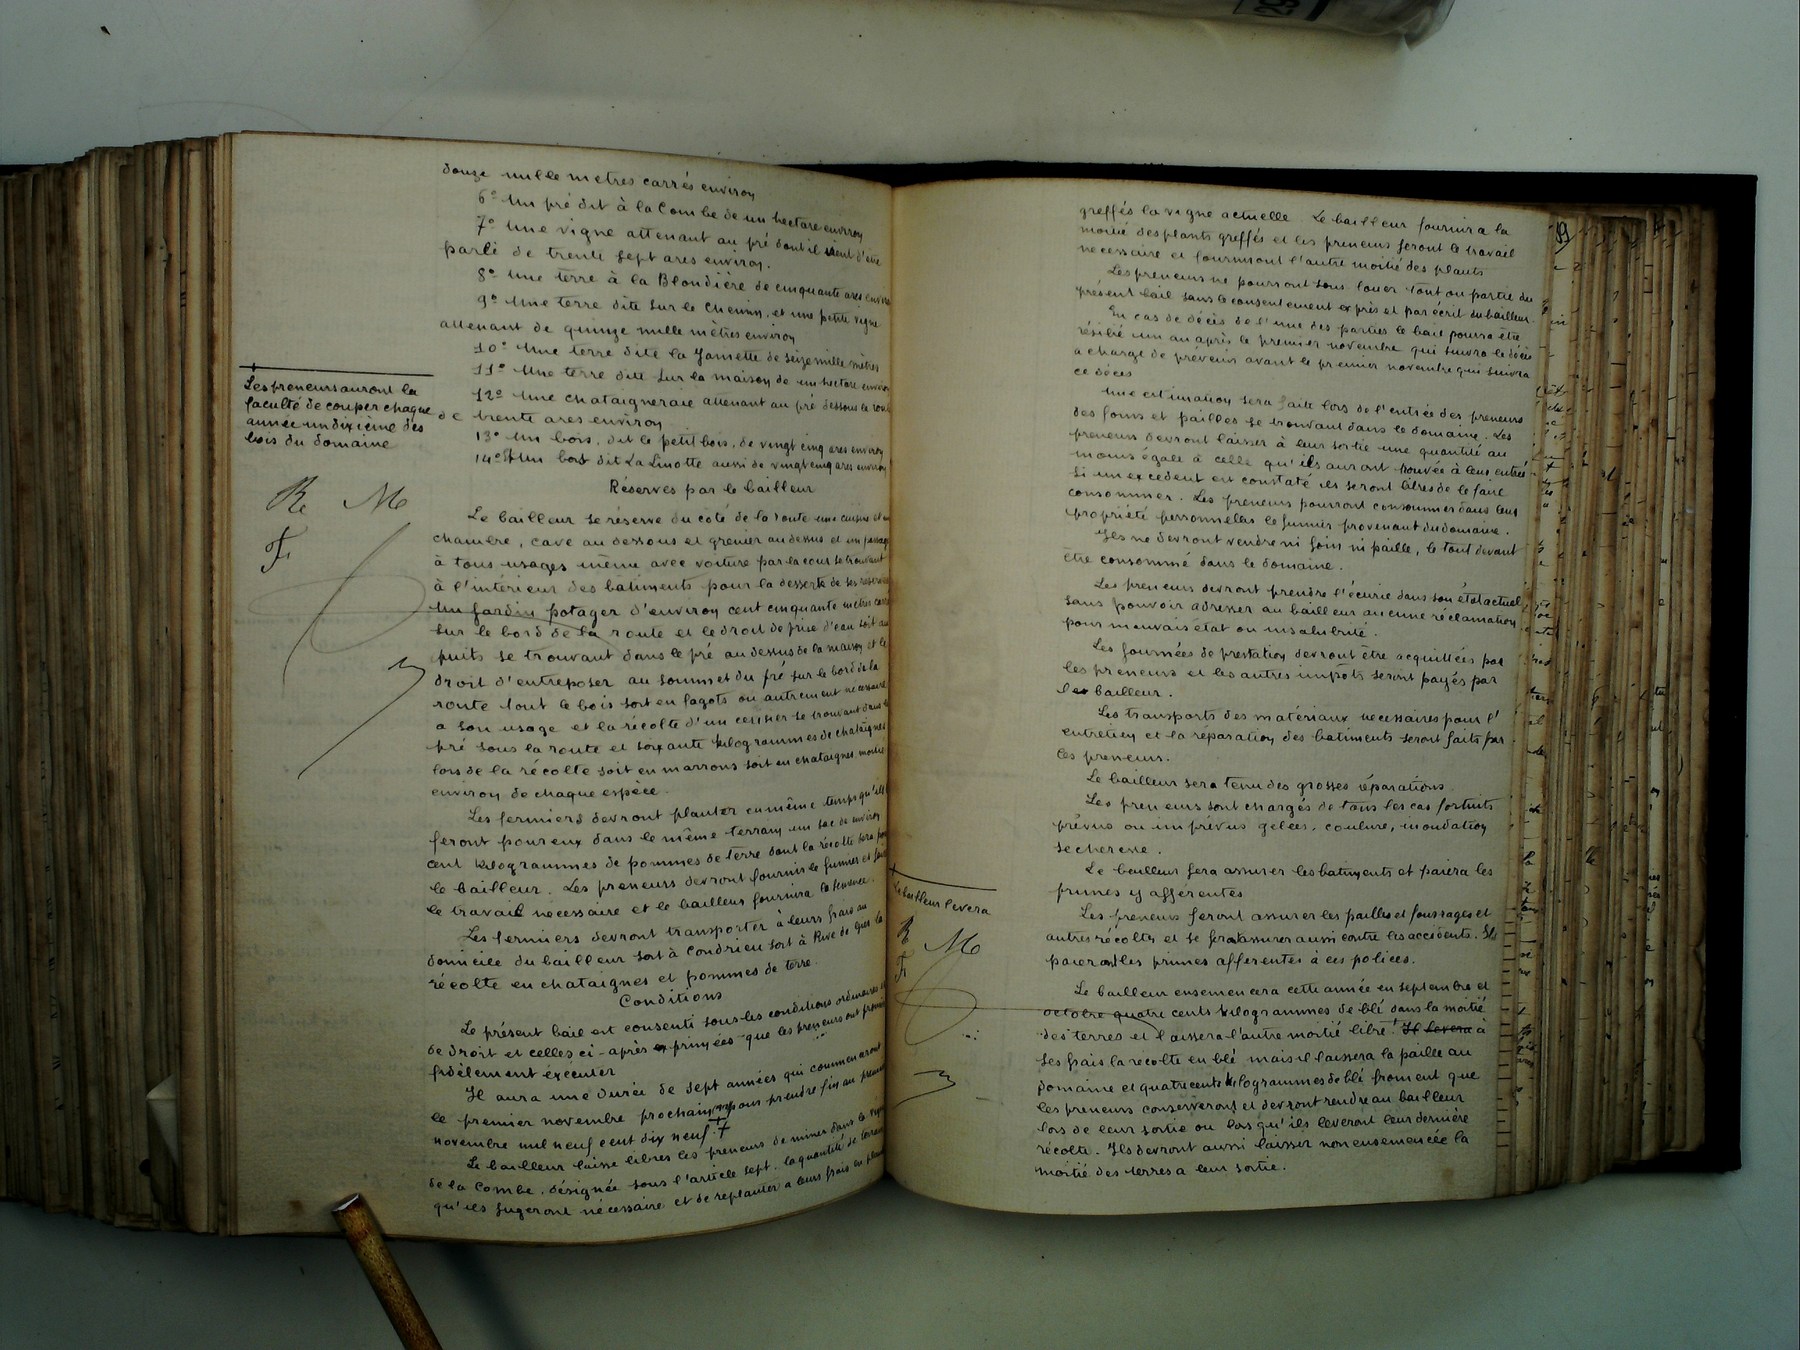 douze mille metres carrés environ
6° Un pré dit à la Combe de un hectare environ
7° Une vigne attenant au pré dont il vient d'être
parlé de trente sept ares environ.
8° Une terre à la Blondière de cinquante ares environ
9° Une terre dite sur le Chemin, et une petite vigne
attenant de quinze mille mètres environ
10° Une terre dite la Jamette de seize mille mètres
11° Une terre dite sur la maison de un hectare environ
12° Une chataigneraie attenant au pré dessous la route
de trente ares environ
13° Un bois, dit le petit bois, de vingt cinq ares environ
14° Un bois dit La Linotte aussi de vingt cinq ares environ
Les preneurs auront la
faculté de couper chaque
année un dixième des
bois du domaine
R M
F
Réserves par le bailleur
Le bailleur se réserve du côté de la route une cuisine et une
chambre, cave au dessous et grenier au dessus et un passage
à tous usages même avec voiture par la cour se trouvant
à l'intérieur des bâtiments pour la desserte de ses réserves
Un jardin potager d'environ cent cinquante mètres carrés
sur le bord de la route et le droit de prise d'eau soit au
puits se trouvant dans le pré au dessus de la maison et le
droit d'entreposer au sommet du pré sur le bord de la
route tout le bois soit en fagots ou autrement nécessaire
a son usage et la récolte d'un cerisier se trouvant dans le
pré sous la route et soixante kilogrammes de chataignes
lors de la récolte soit en marrons soit en chataignes moitié
environ de chaque espèce.
Les fermiers devront planter en même temps qu'ils
feront pour eux dans le même terrain un sac de environ
cent kilogrammes de pommes de terre dont la récolte sera pour
le bailleur. Les preneurs devront fournir le fumier et faire
le travail nécessaire et le bailleur fournira la semence.
Les fermiers devront transporter à leurs frais au
domicile du bailleur soit à Condrieu soit à Rive de Gier la
récolte en chataignes et pommes de terre.
Conditions
Le présent bail est consenti sous les conditions ordinaires et
de droit et celles ci-après exprimées que les preneurs ont promis
fidèlement éxécuter
Il aura une durée de sept années qui commenceront
le premier novembre prochain pour prendre fin au premier
novembre mil neuf cent dix neuf.
Le bailleur laisse libres les preneurs de miner dans la vigne
de la Combe, désignée sous l'article sept, la quantité de terrain
qu'ils jugeront nécessaire et de replanter a leurs frais en plants
59
greffés la vigne actuelle. Le bailleur fournira la
moitié des plants greffés et les preneurs feront le travail
necessaire et fourniront l'autre moitié des plants
Les preneurs ne pourront sous louer tout ou partie du
présent bail sans le consentement exprès et par écrit du bailleur.
En cas de décès de l'une des parties le bail pourra être
résilié un an après le premier novembre qui suivra le décès
a charge de prévenir avant le premier novembre qui suivra
ce décès
Une estimation sera faite lors de l'entrée des preneurs
des foins et pailles se trouvant dans le domaine. Les
preneurs devront laisser à leur sortie une quantité au
moins égale à celle qu'ils auront trouvée à leur entrée
Si un excédent est constaté ils seront libres de le faire
consommer. Les preneurs pourront consommer dans leur
propriété personnelles le fumier provenant du domaine.
Ils ne devront vendre ni foin ni paille, le tout devant
être consommé dans le domaine.
Les preneurs devront prendre l'écurie dans son état actuel
sans pouvoir adresser au bailleur aucune réclamation
pour mauvais état ou insalubrité.
Les journées de prestation devront être acquittées par
les preneurs et les autres impôts seront payés par
le bailleur.
Les transports des matériaux necessaires pour l'
entretien et la réparation des batiments seront faits par
les preneurs.
Le bailleur sera tenu des grosses réparations.
Les preneurs sont chargés de tous les cas fortuits
prévus ou imprévus gelées, coulure, inondation
secheresse.
Le bailleur fera assurer les batiments et paiera les
primes y afférentes
Les preneurs feront assurer les pailles et fourrages et
autres récoltes et se feront assurer aussi contre les accidents. Ils
paieront les primes afférentes à ces polices.
Le bailleur ensemencera cette année en septembre et
octobre quatre cents kilogrammes de blé dans la moitié
des terres et laissera l'autre moitié libre. Il levera à
ses frais la récolte en blé mais il laissera la paille au
domaine et quatre cents kilogrammes de blé froment que
les preneurs conserveront et devront rendre au bailleur
lors de leur sortie ou lorsqu'ils leveront leur dernière
récolte. Ils devront aussi laisser non ensemencée la
moitié des terres a leur sortie.
Le bailleur levera
R M
F